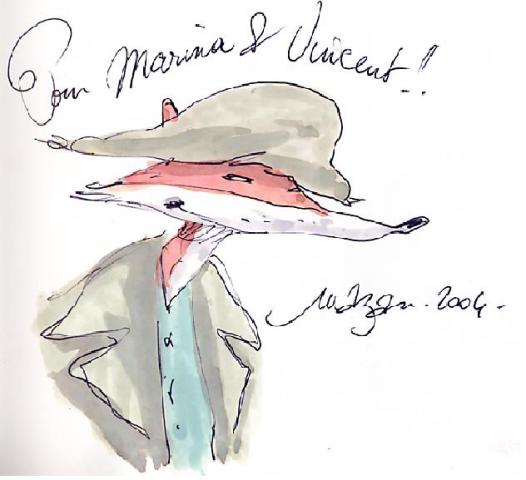 Pour Marina & Vincent!!
2004